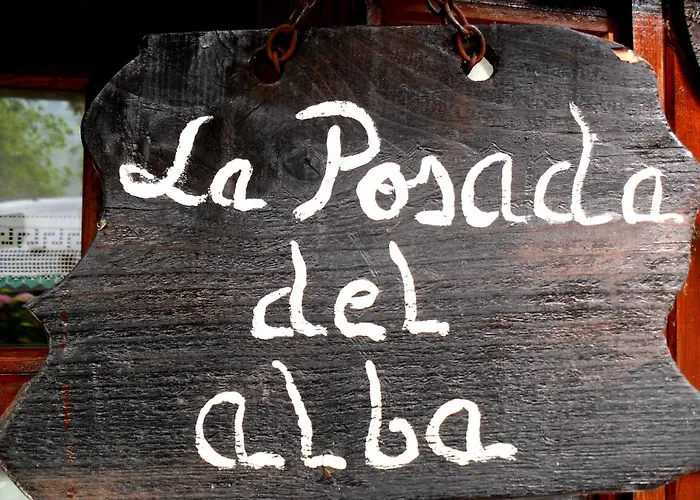 La Posada
del
alba